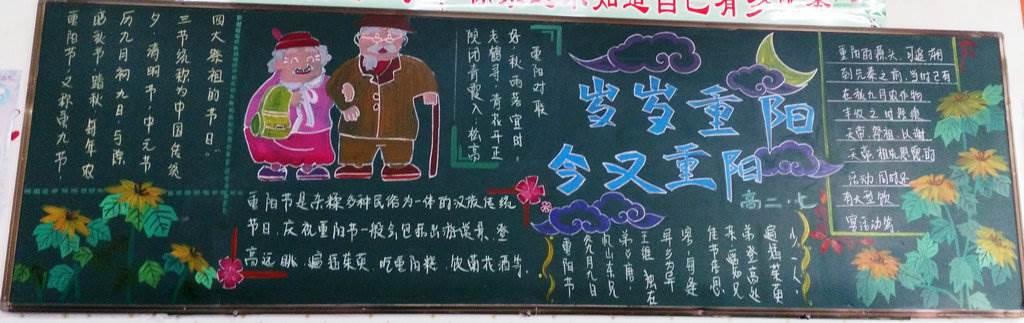 知道自己有多
重阳节,又称重九节、
感秋节、踏秋,每年农
历九月初九日,与除
夕、清明节、中元节
三节统称为中国传统
四大祭祖的节日。
重阳对联
院闭青霞入,松高
老鹤寻,青花开正
好,秋雨落宜时,
重阳节是杂糅多种民俗为一体的汉族传统
节日,庆祝重阳节一般会包括出游赏景、登
高远眺、遍插茱萸、吃重阳糕、饮菊花酒等。
岁岁重阳
今又重阳
高二·七
重阳节
九月九日
忆山东兄
弟 唐
王维 独在
异乡为异
客 每逢
佳节倍思
亲 遥知兄
弟登高处
遍插茱萸
少一人。
重阳的源头,可追溯
到先秦之前,当时已有
在秋九月农作物
丰收之时祭飨
天帝、祭祖,以谢
天帝、祖先恩德的
活动,同时还
有大型饮
宴活动等